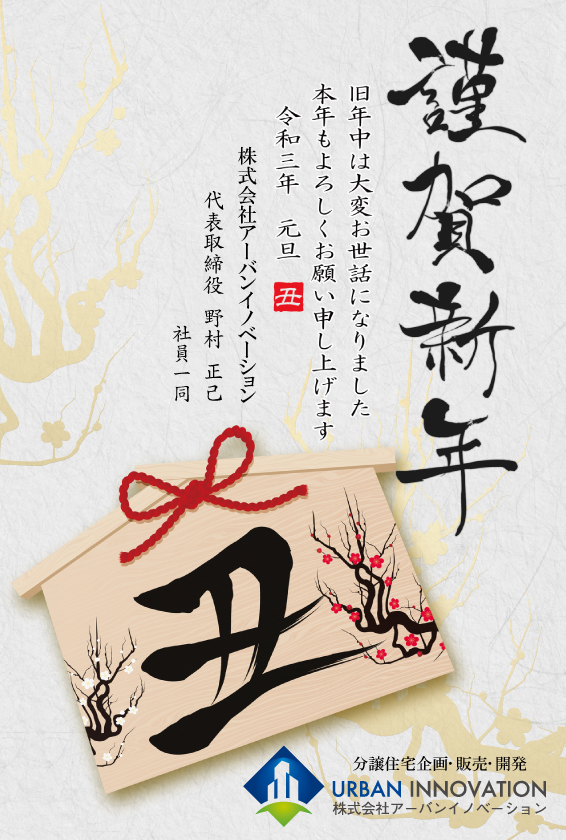 謹賀新年
旧年中は大変お世話になりました
本年もよろしくお願い申し上げます
令和三年 元旦
丑
株式会社アーバンイノベーション
代表取締役 野村 正己
社員一同
丑
分譲住宅企画・販売・開発
URBAN INNOVATION
株式会社アーバンイノベーション